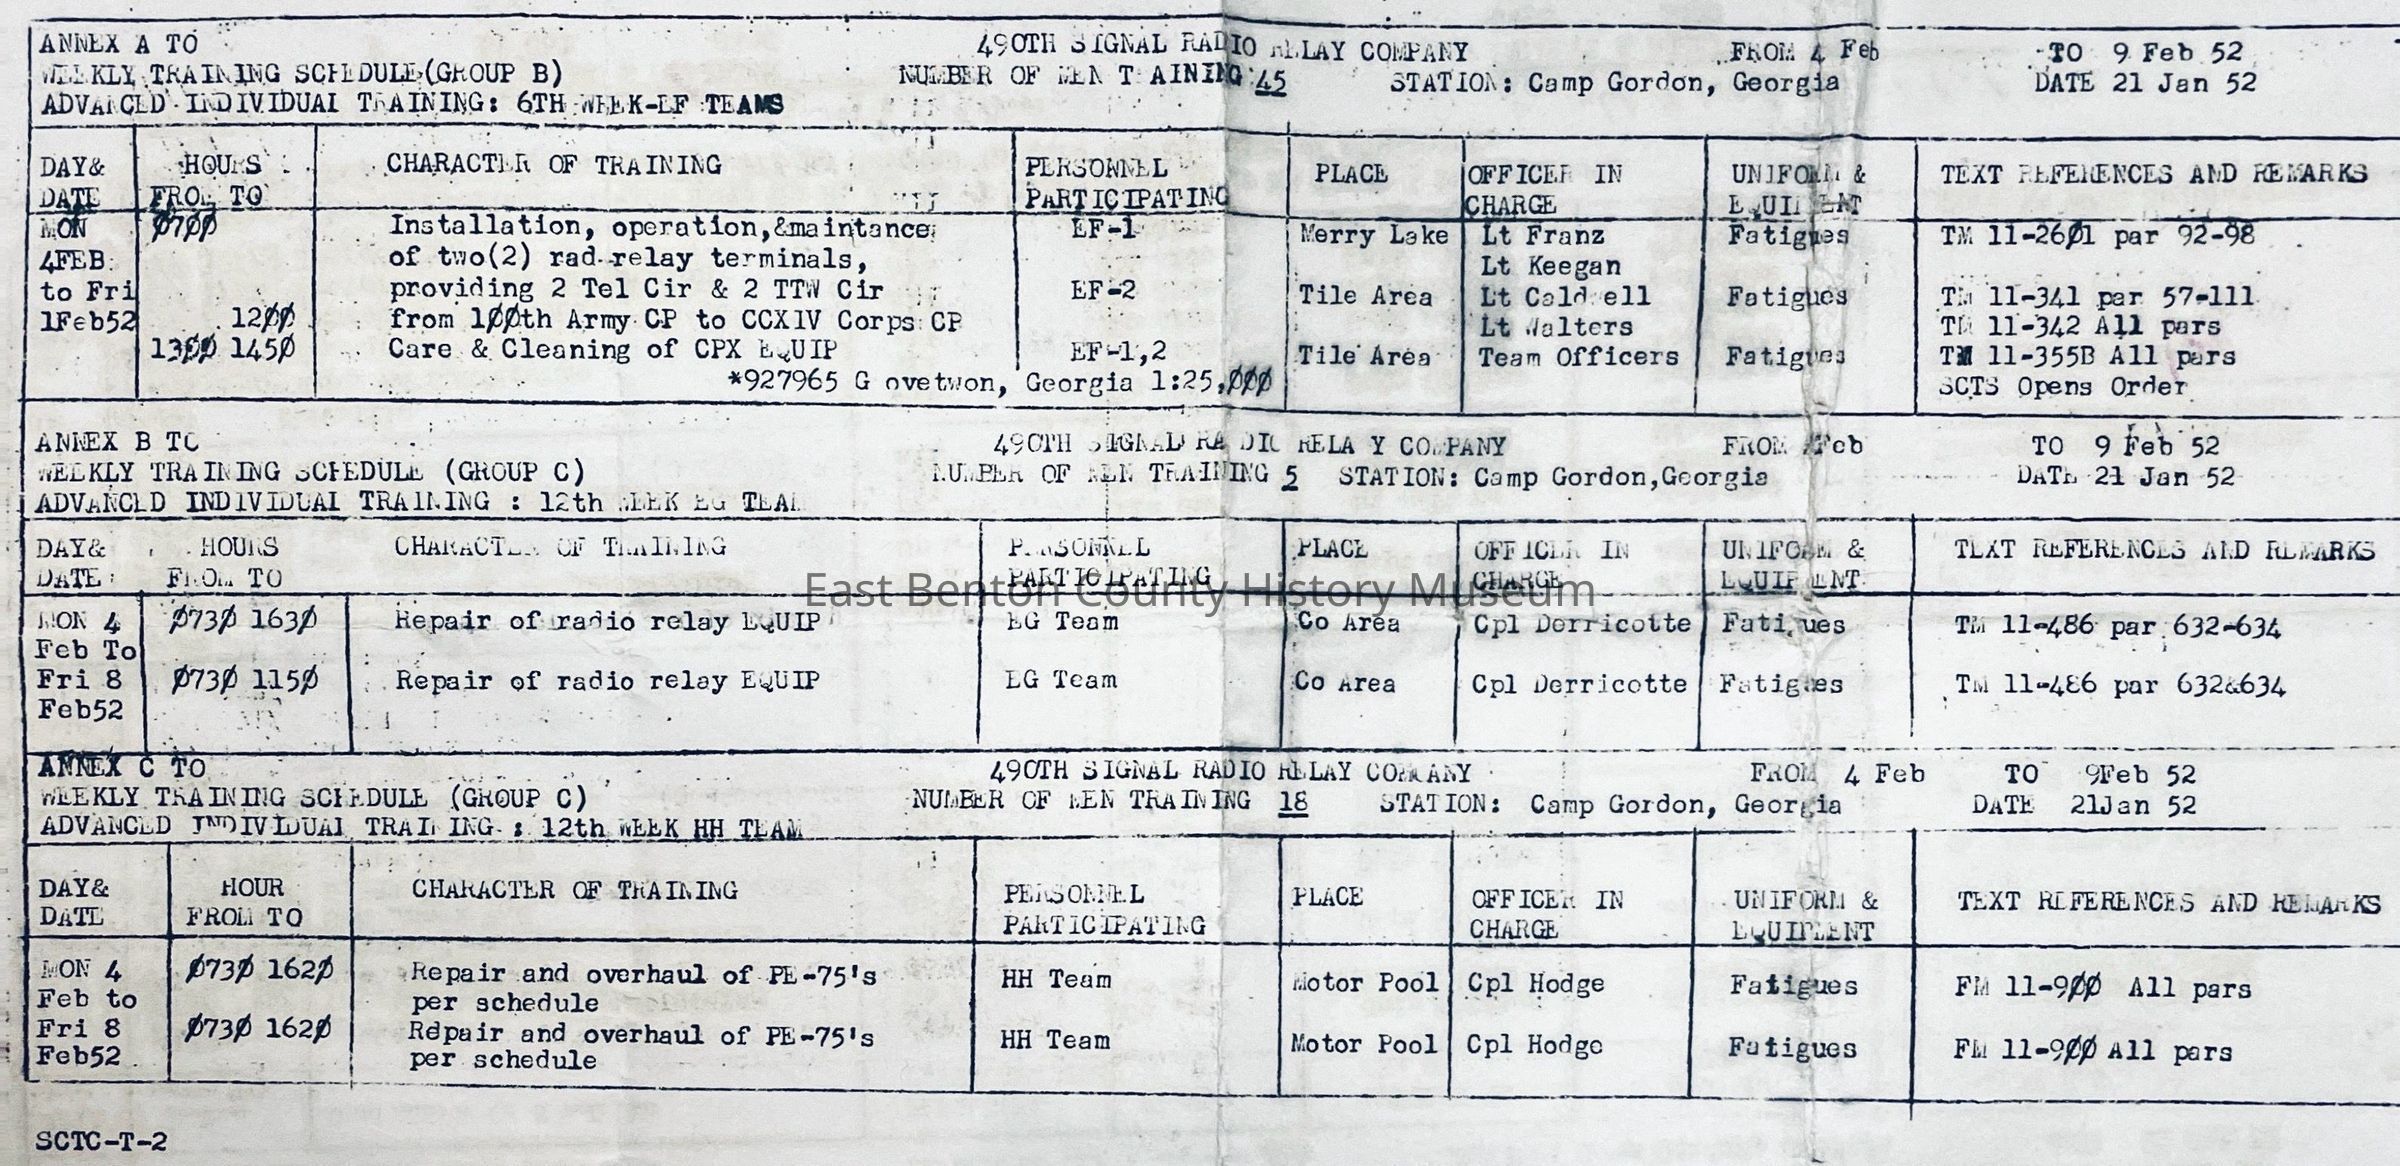 ANNEX A TO 490TH SIGNAL RADIO RELAY COMPANY FROM 4 Feb TO 9 Feb 52
WEEKLY TRAINING SCHEDULE(GROUP B) NUMBER OF MEN TRAINING 45 STATION: Camp Gordon, Georgia DATE 21 Jan 52
ADVANCED INDIVIDUAL TRAINING: 6TH WEEK-EF TEAMS
DAY& HOURS CHARACTER OF TRAINING PERSONNEL PLACE OFFICER IN UNIFORM & TEXT REFERENCES AND REMARKS
DATE FROM TO PARTICIPATING CHARGE EQUIPMENT
MON 0700 Installation, operation,&maintance EF-1 Merry Lake Lt Franz Fatigues TM 11-2601 par 92-98
4FEB of two(2) rad-relay terminals, Lt Keegan
to Fri providing 2 Tel Cir & 2 TTW Cir EF-2 Tile Area Lt Caldwell Fatigues TM 11-341 par 57-111
1Feb52 1200 from 100th Army CP to CCXIV Corps CP Lt Walters TM 11-342 All pars
1300 1450 Care & Cleaning of CPX EQUIP EF-1,2 Tile Area Team Officers Fatigues TM 11-355B All pars
*927965 G ovetwon, Georgia 1:25,000 SCTS Opens Order
ANNEX B TO 490TH SIGNAL RADIO RELA Y COMPANY FROM 4Feb TO 9 Feb 52
WEEKLY TRAINING SCHEDULE (GROUP C) NUMBER OF MEN TRAINING 5 STATION: Camp Gordon,Georgia DATE 21 Jan 52
ADVANCED INDIVIDUAL TRAINING : 12th WEEK EG TEAM
DAY& HOURS CHARACTER OF TRAINING PERSONNEL PLACE OFFICER IN UNIFORM & TEXT REFERENCES AND REMARKS
DATE FROM TO PARTICIPATING CHARGE EQUIPMENT
East Benton County History Museum
MON 4 0730 1630 Repair of radio relay EQUIP EG Team Co Area Cpl Derricotte Fatigues TM 11-486 par 632-634
Feb To
Fri 8 0730 1150 Repair of radio relay EQUIP EG Team Co Area Cpl Derricotte Fatigues TM 11-486 par 632&634
Feb52
ANNEX C TO 490TH SIGNAL RADIO RELAY COMPANY FROM 4 Feb TO 9Feb 52
WEEKLY TRAINING SCHEDULE (GROUP C) NUMBER OF MEN TRAINING 18 STATION: Camp Gordon, Georgia DATE 21Jan 52
ADVANCED INDIVIDUAL TRAINING : 12th WEEK HH TEAM
DAY& HOUR CHARACTER OF TRAINING PERSONNEL PLACE OFFICER IN UNIFORM & TEXT REFERENCES AND REMARKS
DATE FROM TO PARTICIPATING CHARGE EQUIPMENT
MON 4 0730 1620 Repair and overhaul of PE-75's HH Team Motor Pool Cpl Hodge Fatigues FM 11-900 All pars
Feb to per schedule
Fri 8 0730 1620 Repair and overhaul of PE-75's HH Team Motor Pool Cpl Hodge Fatigues FM 11-900 All pars
Feb52 per schedule
SCTC-T-2